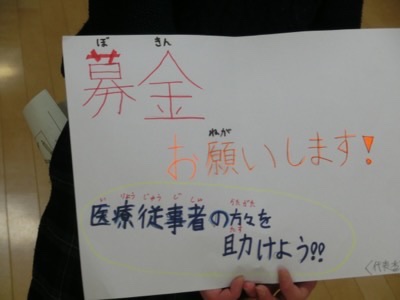 ぼ きん
募金
ねが
お願いします!
いりょうじゅうじしゃ かたがた
医療従事者の方々を
たす
助けよう!!